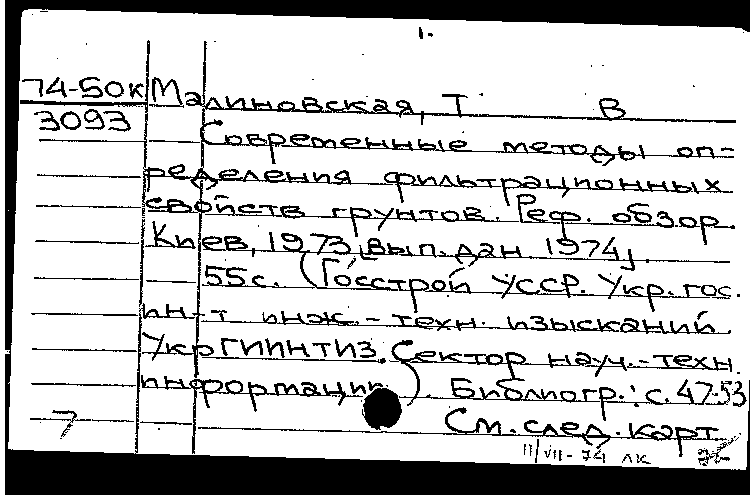 1.
74-50к Малиновская, Т В
3093
Современные методы оп-
ределения фильтрационных
свойств грунтов. Реф. обзор.
Киев, 1973 [вып. дан. 1974].
55с. (Госстрой УССР. Укр. гос.
ин-т инж.-техн. изысканий
УкрГИИНТИЗ. Сектор науч.-техн.
информации). Библиогр.: с. 47-53
7 См. след. карт.
11/VII-74 лк